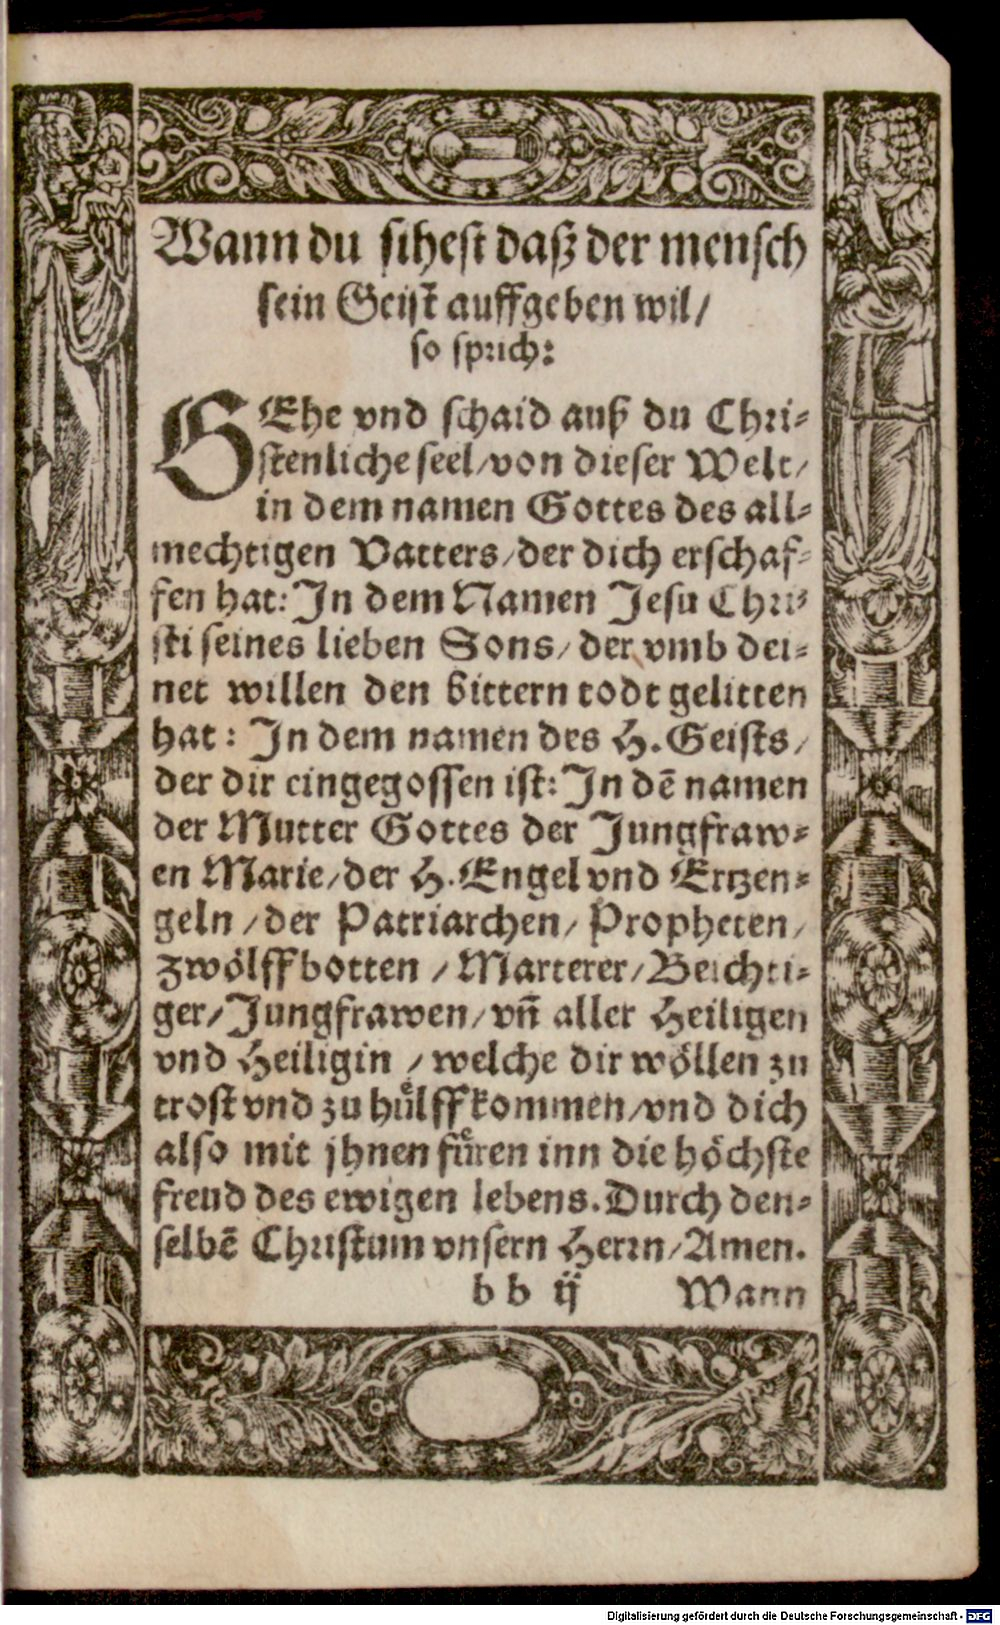 Wann du sihest daß der mensch
sein Geist auffgeben wil/
so sprich:
GEhe vnd schaid auß du Chri⸗
stenliche seel/von dieser Welt/
in dem namen Gottes des all⸗
mechtigen Vatters/der dich erschaf⸗
fen hat: In dem Namen Jesu Chri⸗
sti seines lieben Sons/der vmb dei⸗
net willen den bittern todt gelitten
hat: In dem namen des H. Geists/
der dir eingegossen ist: In dẽ namen
der Mutter Gottes der Jungfraw⸗
en Marie/der H. Engel vnd Ertzen⸗
geln/der Patriarchen/Propheten/
zwölffbotten/Marterer/Beichti⸗
ger/Jungfrawen/vñ aller Heiligen
vnd Heiligin/welche dir wöllen zu
trost vnd zu hůlff kommen/vnd dich
also mit jhnen fůren inn die höchste
freud des ewigen lebens. Durch den⸗
selbẽ Christum vnsern Herrn/Amen.
b b ij Wann
Digitalisierung gefördert durch die Deutsche Forschungsgemeinschaft - DFG